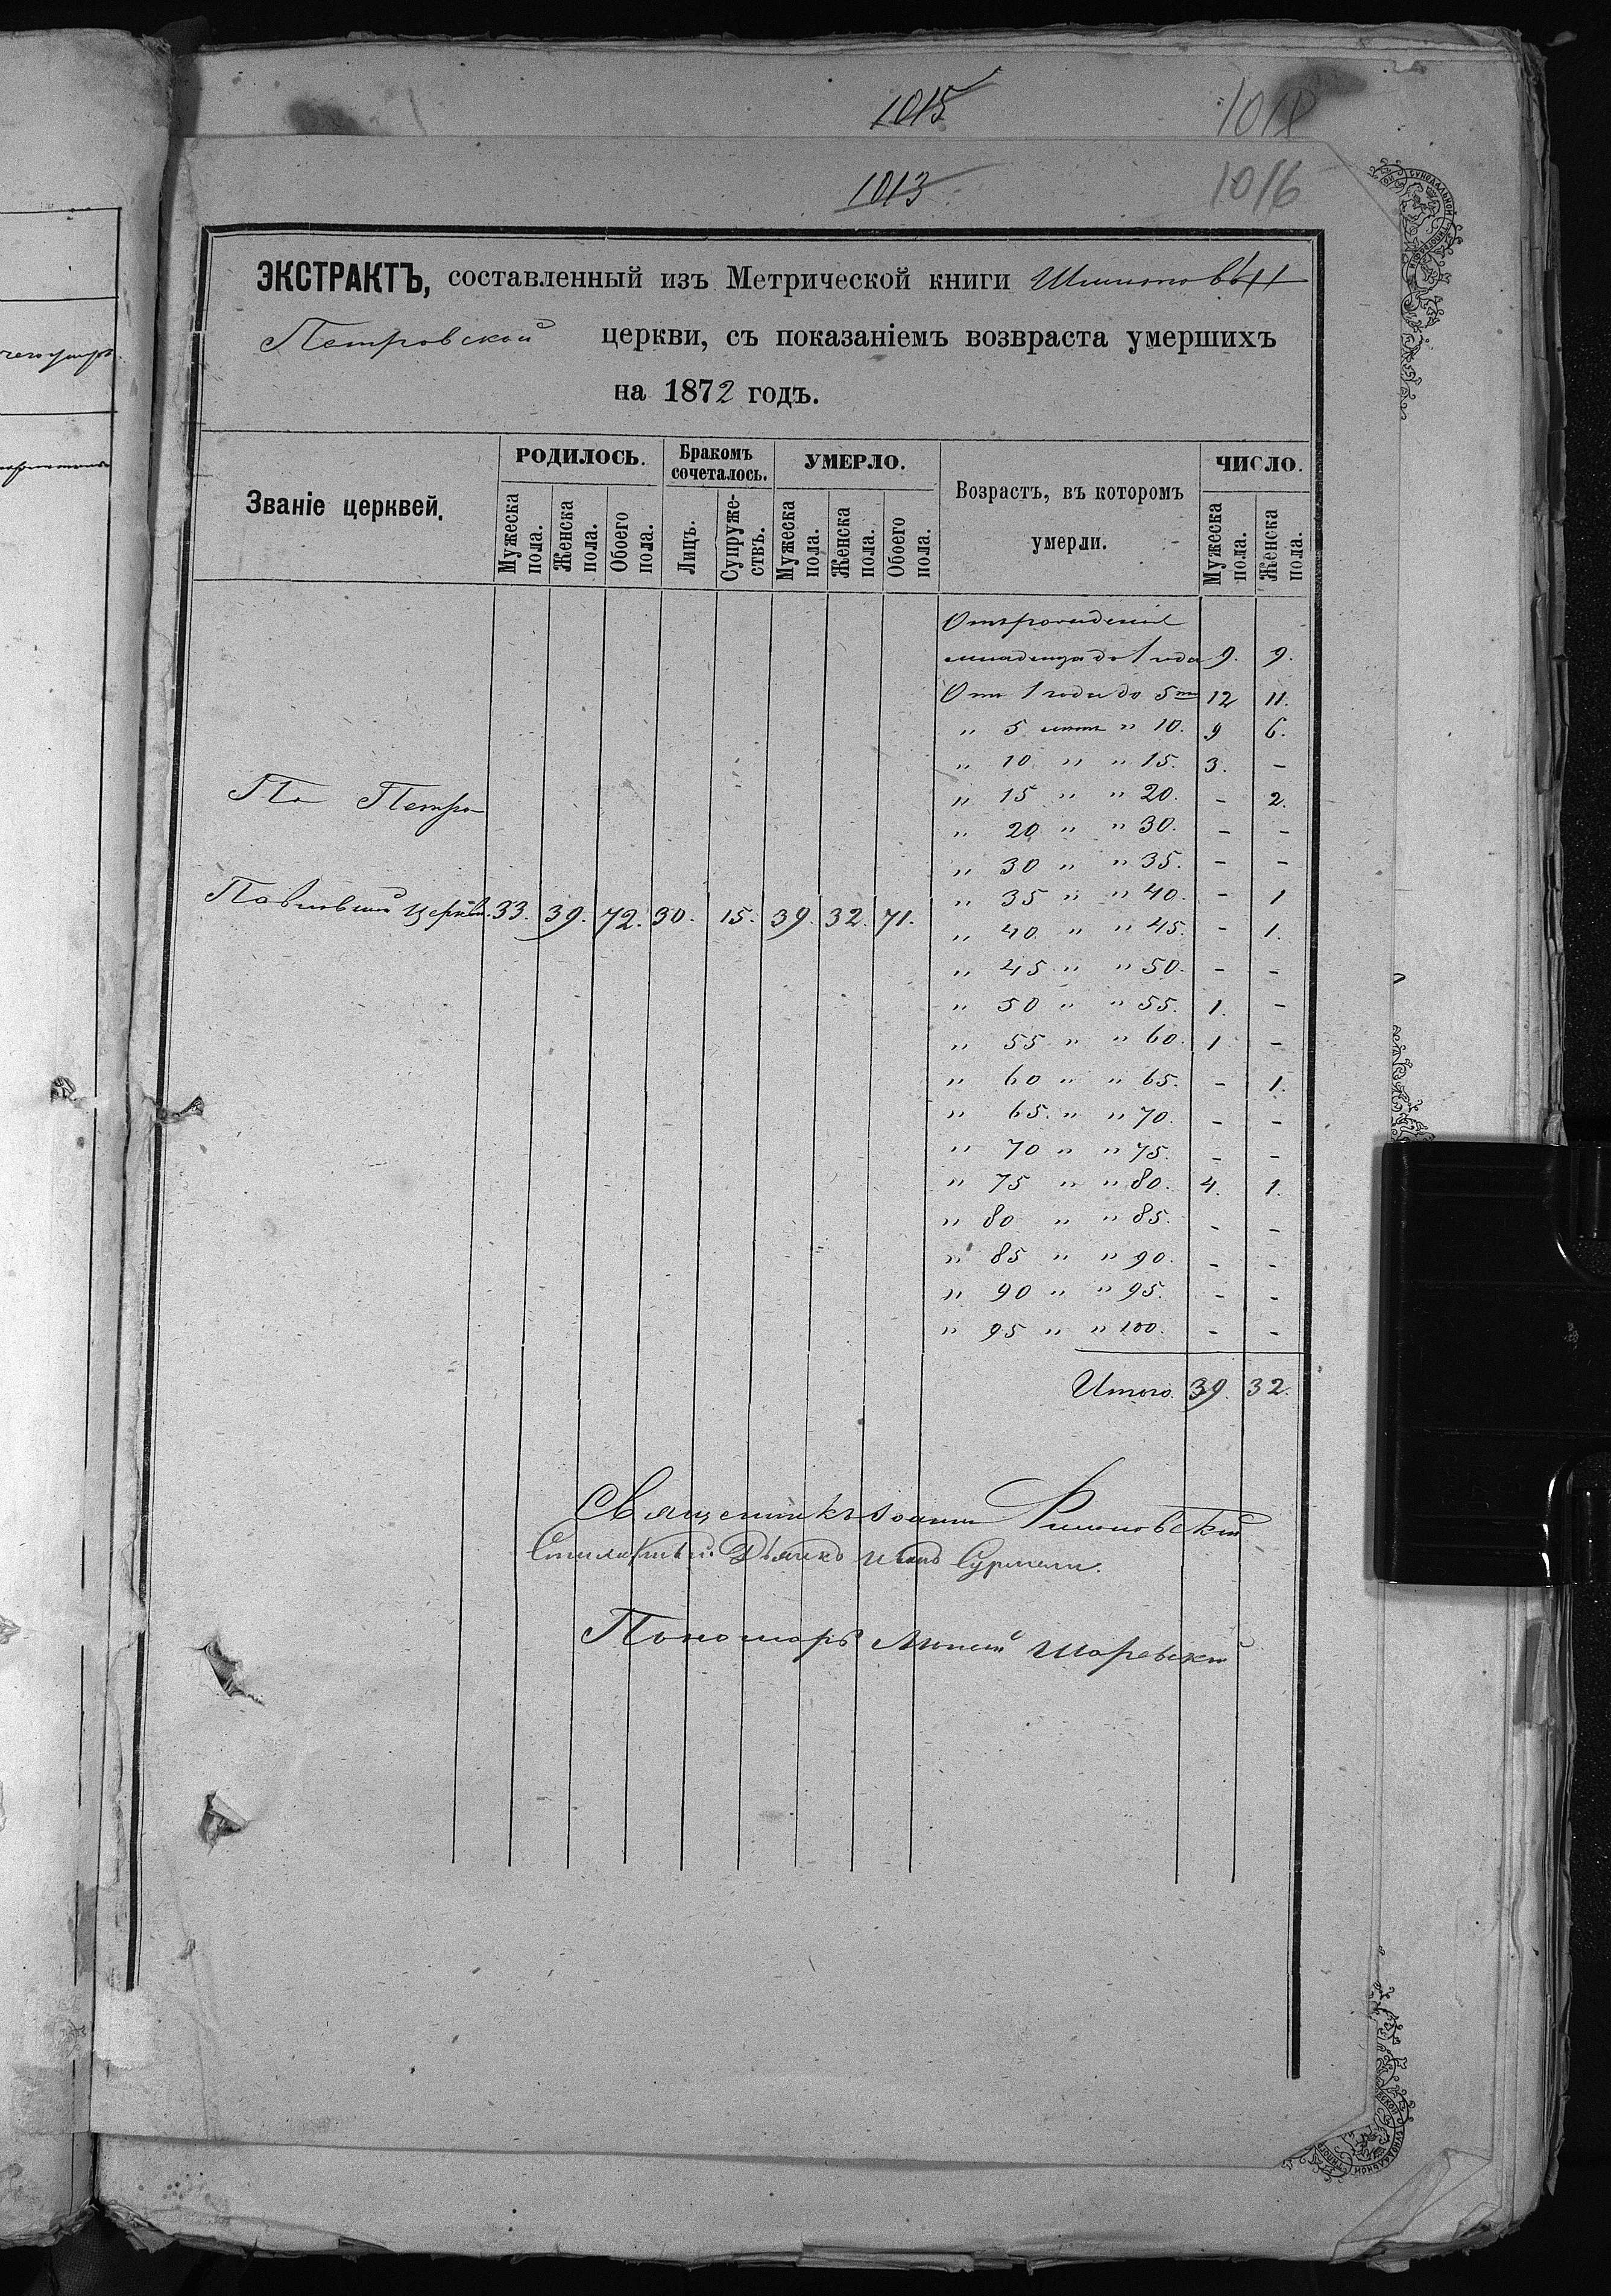 1015
1013
1016
ЭКСТРАКТЪ, составленный изъ Метрической книги
Петровской церкви, съ показаніемъ возвраста умершихъ
на 1872 годъ.
Званіе церквей.
РОДИЛОСЬ.
Мужеска пола.
Женска пола.
Обоего пола.
Бракомъ сочеталось.
Лицъ.
Супружествъ.
УМЕРЛО.
Мужеска пола.
Женска пола.
Обоего пола.
Возрастъ, въ которомъ
умерли.
ЧИСЛО.
Мужеска пола.
Женска пола.
По Петро
Павловской церкви. 33. 39. 72. 30. 15. 39. 32. 71.
Отъ рожденія
младенца до 1 года 9. 9.
Отъ 1 года до 5ти 12 11.
" 5 лѣтъ " 10. 9 6.
" 10 " " 15. 3. -
" 15 " " 20. - 2.
" 20 " " 30. - -
" 30 " " 35. - -
" 35 " " 40. - 1
" 40 " " 45. - 1.
" 45 " " 50. - -
" 50 " " 55. 1. -
" 55 " " 60. 1 -
" 60 " " 65. - 1.
" 65. " " 70. - -
" 70 " " 75. - -
" 75 " " 80. 4. 1.
" 80 " " 85. - -
" 85 " " 90. - -
" 90 " " 95. - -
" 95 " " 100. - -
Итого. 39. 32.
Священникъ Іоаннъ
Дьячекъ
Пономарь